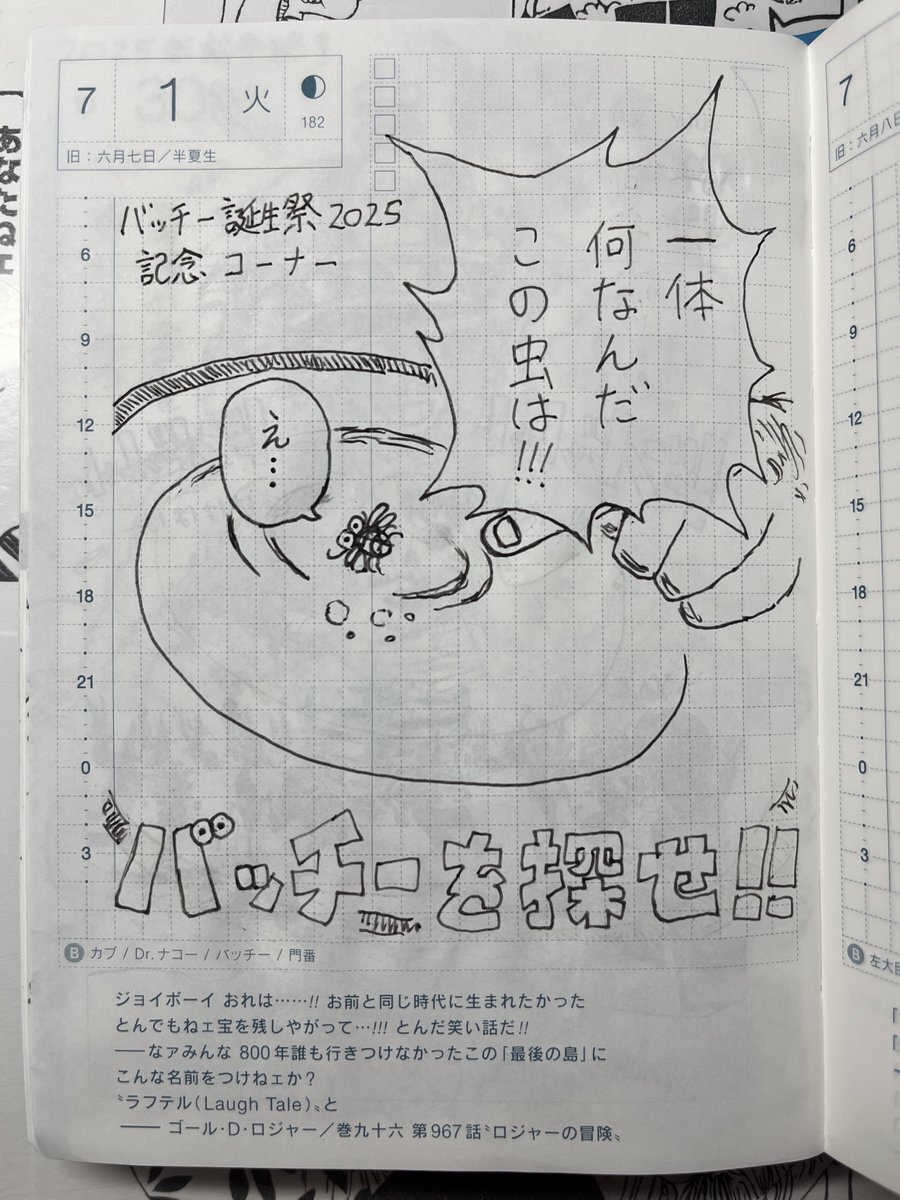 7 1 火
182
旧：六月七日／半夏生
バッチー誕生祭 2025
記念 コーナー
一体
何なんだ
この虫は!!!
え……
6
9
12
15
18
21
0
3
バッチーを探せ!!
B カブ / Dr.ナコー / バッチー / 門番
ジョイボーイ おれは……!! お前と同じ時代に生まれたかった
とんでもねェ宝を残しやがって…!!! とんだ笑い話だ!!
――なァみんな 800年誰も行きつけなかったこの「最後の島」に
こんな名前をつけねェか？
〝ラフテル(Laugh Tale)〟と
―― ゴール・D・ロジャー／巻九十六 第967話〝ロジャーの冒険〟
あなたねェ
7
旧：六月八日
6
9
12
15
18
21
0
3
B 左大臣